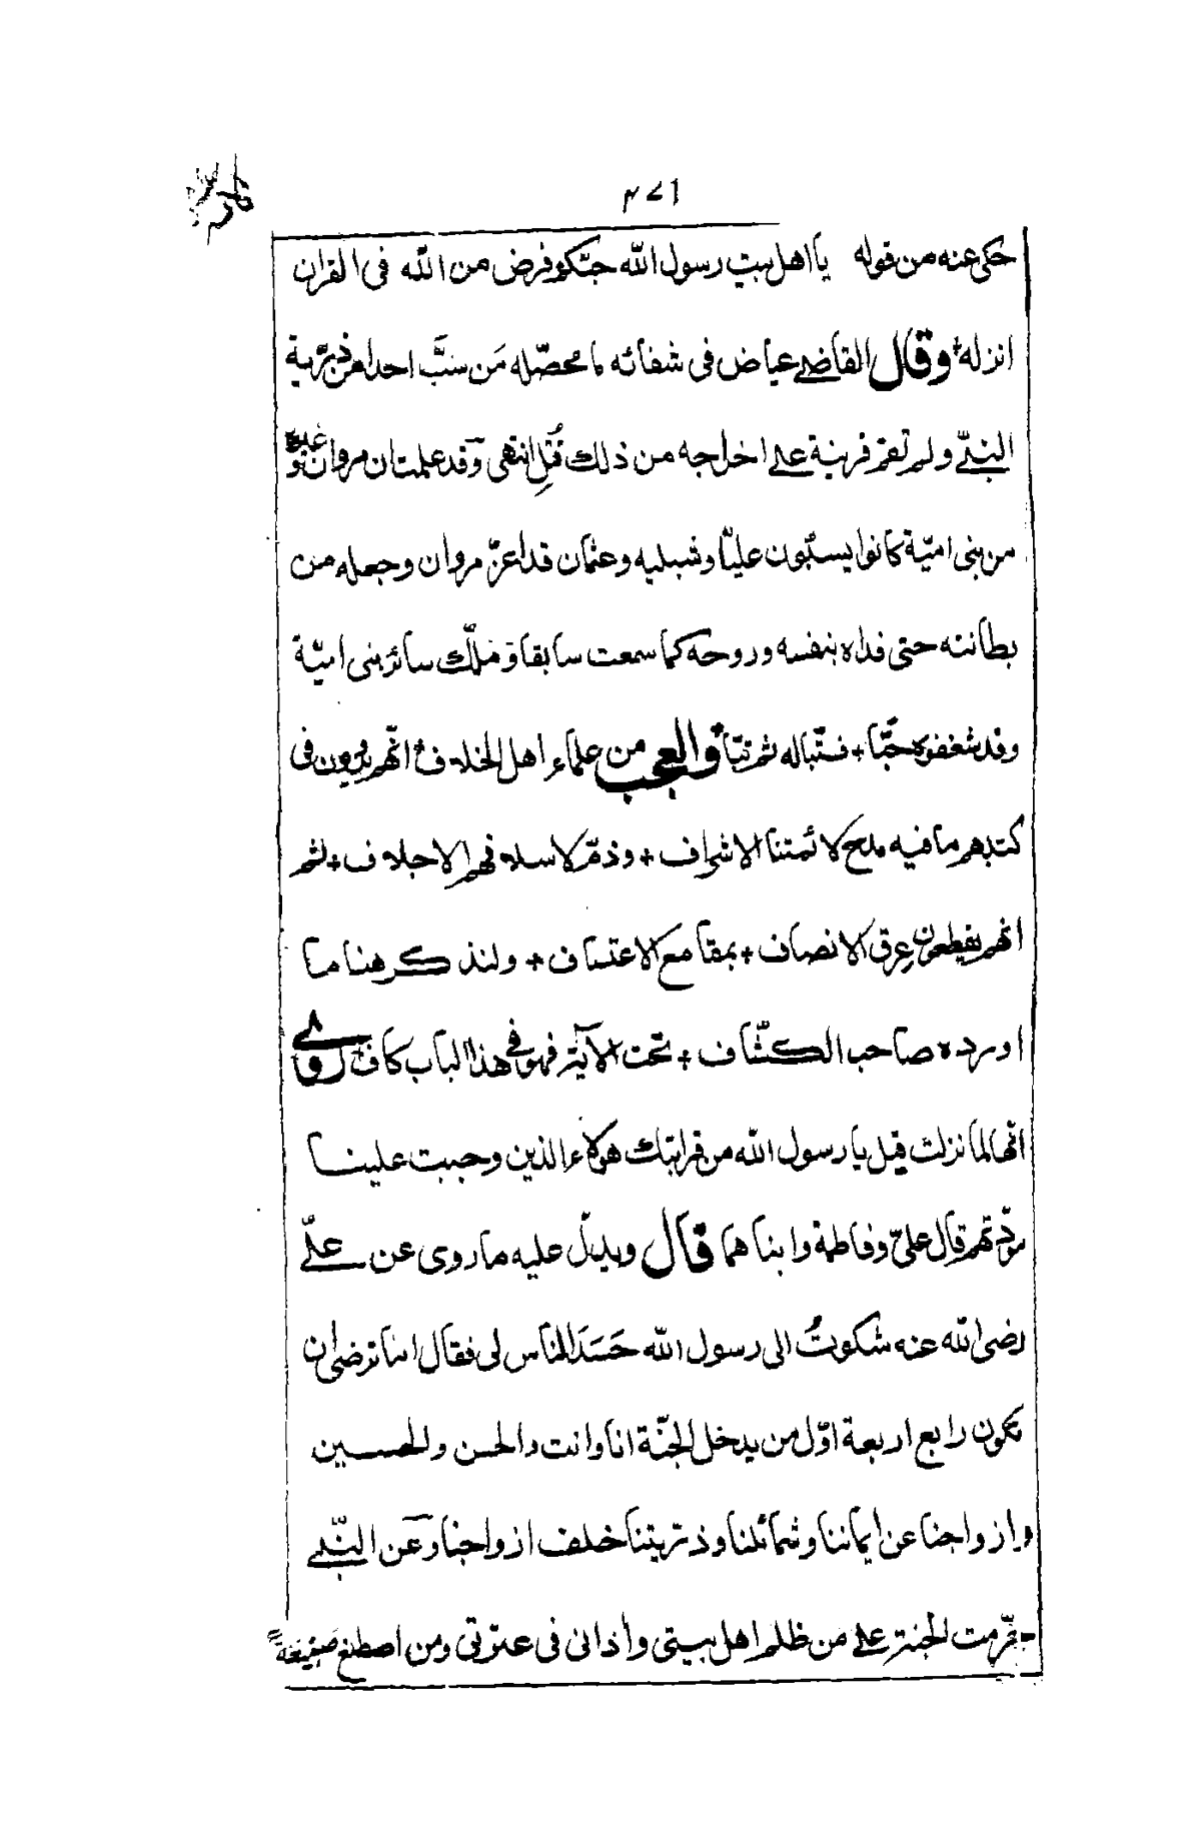 ٤٧١
حكى عنه من قوله يا اهل بيت رسول الله حبّكم فرض من الله فى القران
انزله + وقال القاضى عياض فى شفائه ما محصّله مَن سبَّ احدا من ذرّية
النبىّ ولم تقم قرينة على اخراجه من ذلك قُتِل انتهى وقد علمت ان مروان وغيره
من بنى اميّة كانوا يسبّون عليّا وشبليه وعثمان قد اعزّ مروان وجعله من
بطانته حتى فداه بنفسه وروحه كما سمعت سابقا ومَلّك سائر بنى اميّة
وقد شغفوه حبّا + فتبّا له ثم تبّا والعجب من علماء اهل الخلاف انّهم يروون فى
كتبهم ما فيه مدح لائمتنا الاشراف + وذمّ لاسلافهم الاجلاف + ثم
انهم يقطعون عِرق الانصاف + بمقامع الاعتساف + ولنذكر هنا ما
اورده صاحب الكشّاف + تحت الآية فهو فى هذا الباب كاف روى
انّها لما نزلت قيل يا رسول الله من قرابتك هؤلاء الذين وجبت علينا
مودّتهم قال علىّ وفاطمة وابناهما قال ويدلّ عليه ما روى عن علىّ
رضى الله عنه شكوتُ الى رسول الله حَسَدَ الناس لى فقال اما ترضى ان
تكون رابع اربعة اوّل من يدخل الجنّة انا وانت والحسن والحسين
وازواجنا عن ايماننا وشمائلنا وذرّيتنا خلف ازواجنا وعن النبّى
حرّمت الجنة على من ظلم اهل بيتى وأذانى فى عترتى ومن اصطنع صنيعةً